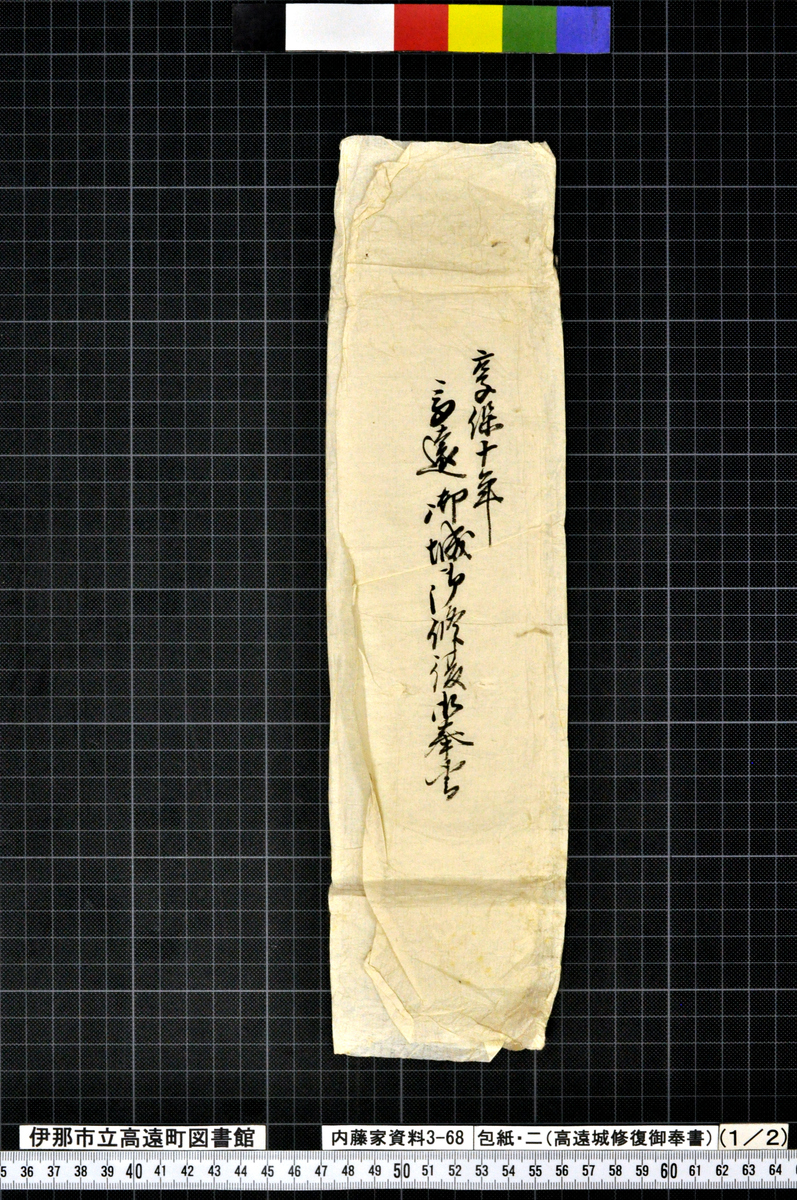 享保十年
高遠御城御修復御奉書
伊那市立高遠町図書館
内藤家資料3-68
包紙・二（高遠城修復御奉書）
（1／2）
5 36 37 38 39 40 41 42 43 44 45 46 47 48 49 50 51 52 53 54 55 56 57 58 59 60 61 62 63 64 6